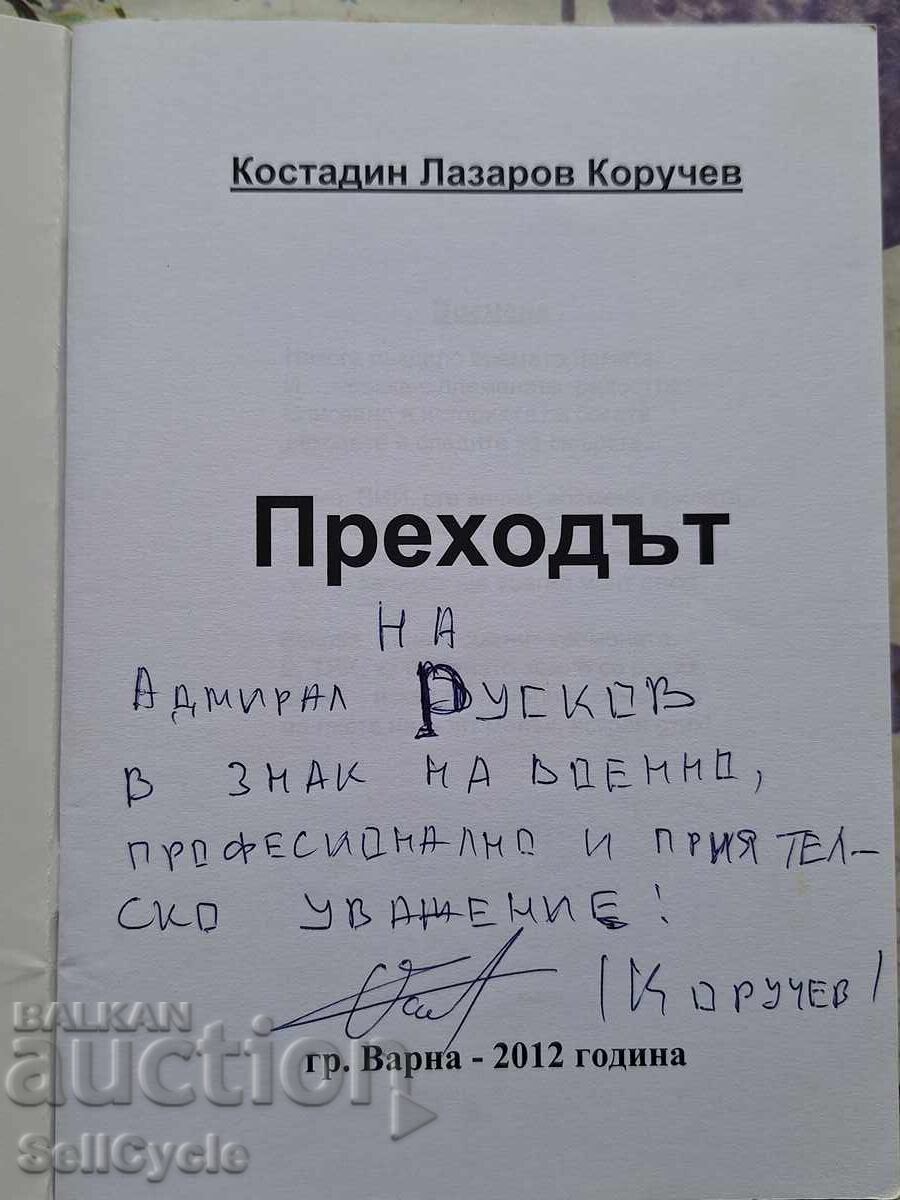 Костадин Лазаров Коручев
Преходът
НА
АДМИРАЛ РУСКОВ
В ЗНАК НА ВОЕННО,
ПРОФЕСИОНАЛНО И ПРИЯТЕЛ-
СКО УВАЖЕНИЕ!
/КОРУЧЕВ/
гр. Варна - 2012 година
BALKAN
auction
SellCycle